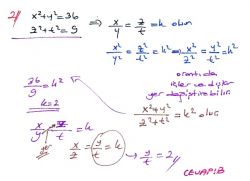 2)
x²+y²=36
z²+t²=9
⟹ x/y = z/t = k olsun
x²/y² = z²/t² = k² ⟹ x²/z² = y²/t² = k²
orantıda
içler ve dışlar
yer değiştirebilir.
36/9 = k²
k=2
x²+y²/z²+t² = k² olur.
x/y = z/t = k
x/z = y/t = k
y/t = 2//
CEVAP: B